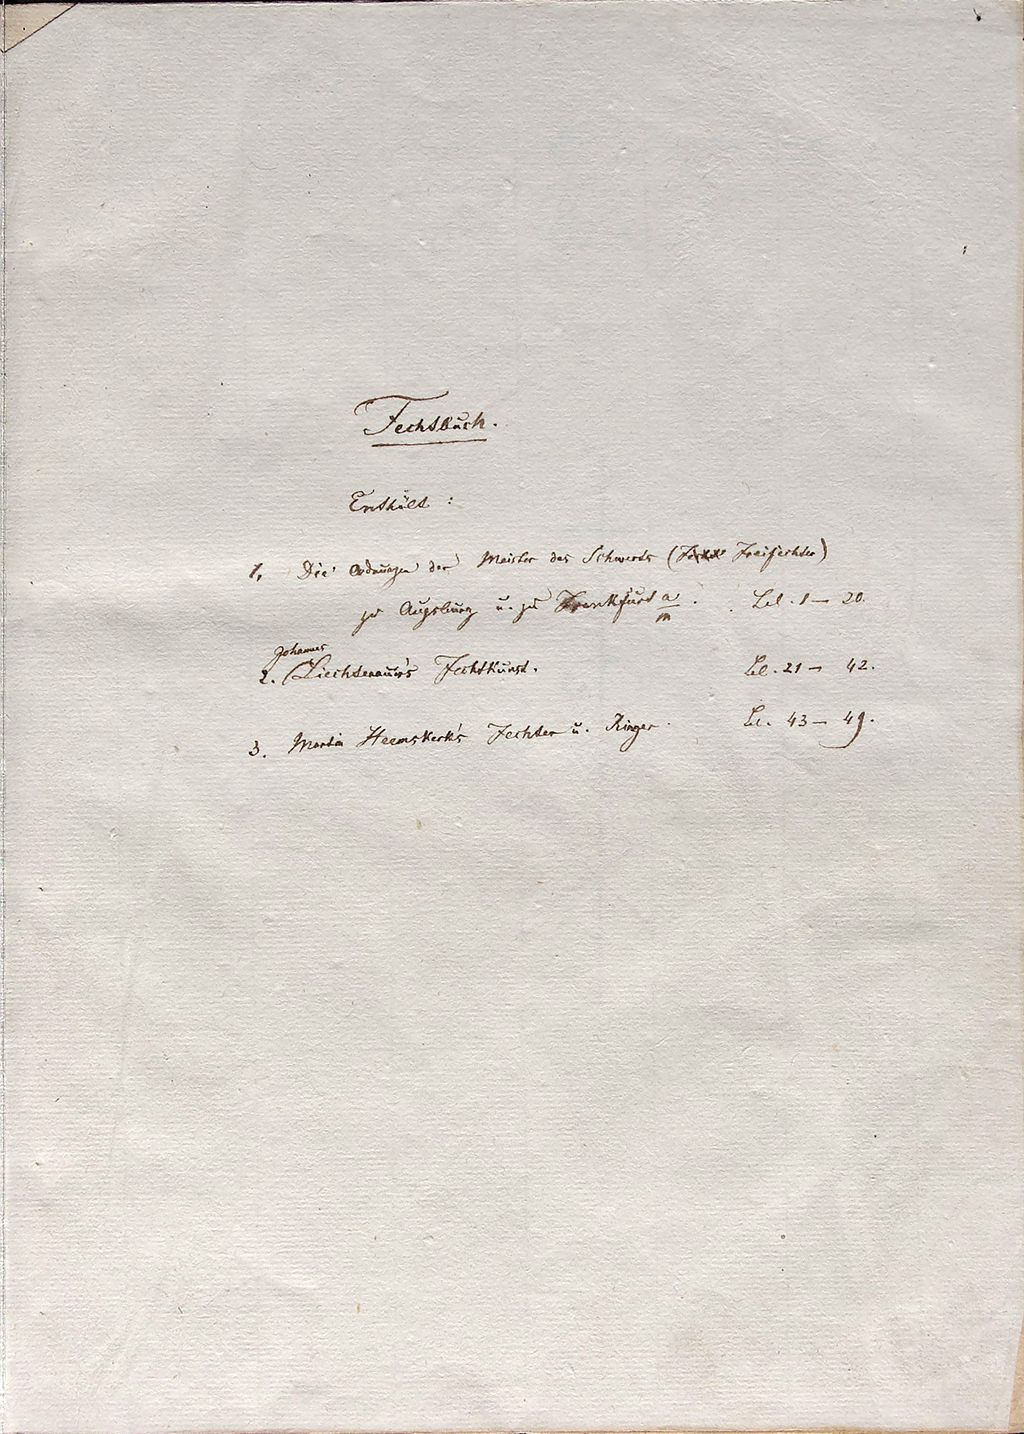 Fechtbuch.
Enthält:
1. Die Ordnungen der Meister des Schwerts (Freifechter)
zu Augsburg u. zu Frankfurt a/m. Bl. 1 — 20.
Johannes
2. Liechtenauer's Fechtkunst. Bl. 21 — 42.
3. Martin Heemskerk's Fechter u. Ringer. Bl. 43 — 49.